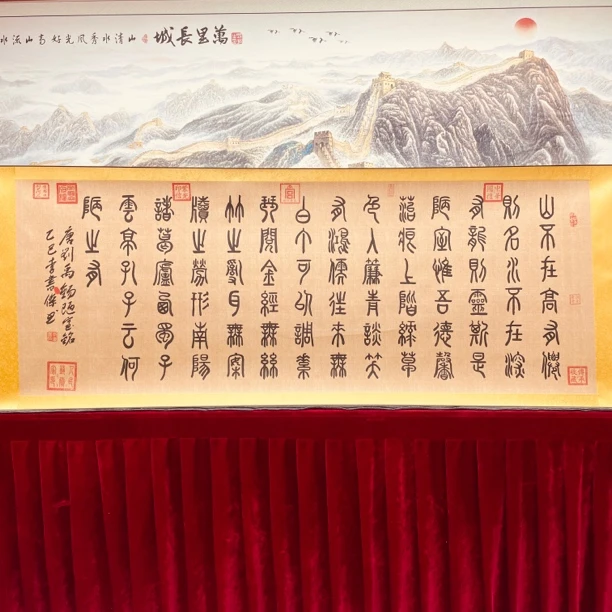 萬里長城
山清水秀風光好高山流水
山不在高有僊
則名水不在深
有龍則靈斯是
陋室惟吾德馨
苔痕上階綠草
色入簾青談笑
有鴻儒往來無
白丁可以調素
琴閱金經無絲
竹之亂耳無案
牘之勞形南陽
諸葛廬西蜀子
雲亭孔子云何
陋之有
唐劉禹錫陋室銘
乙巳